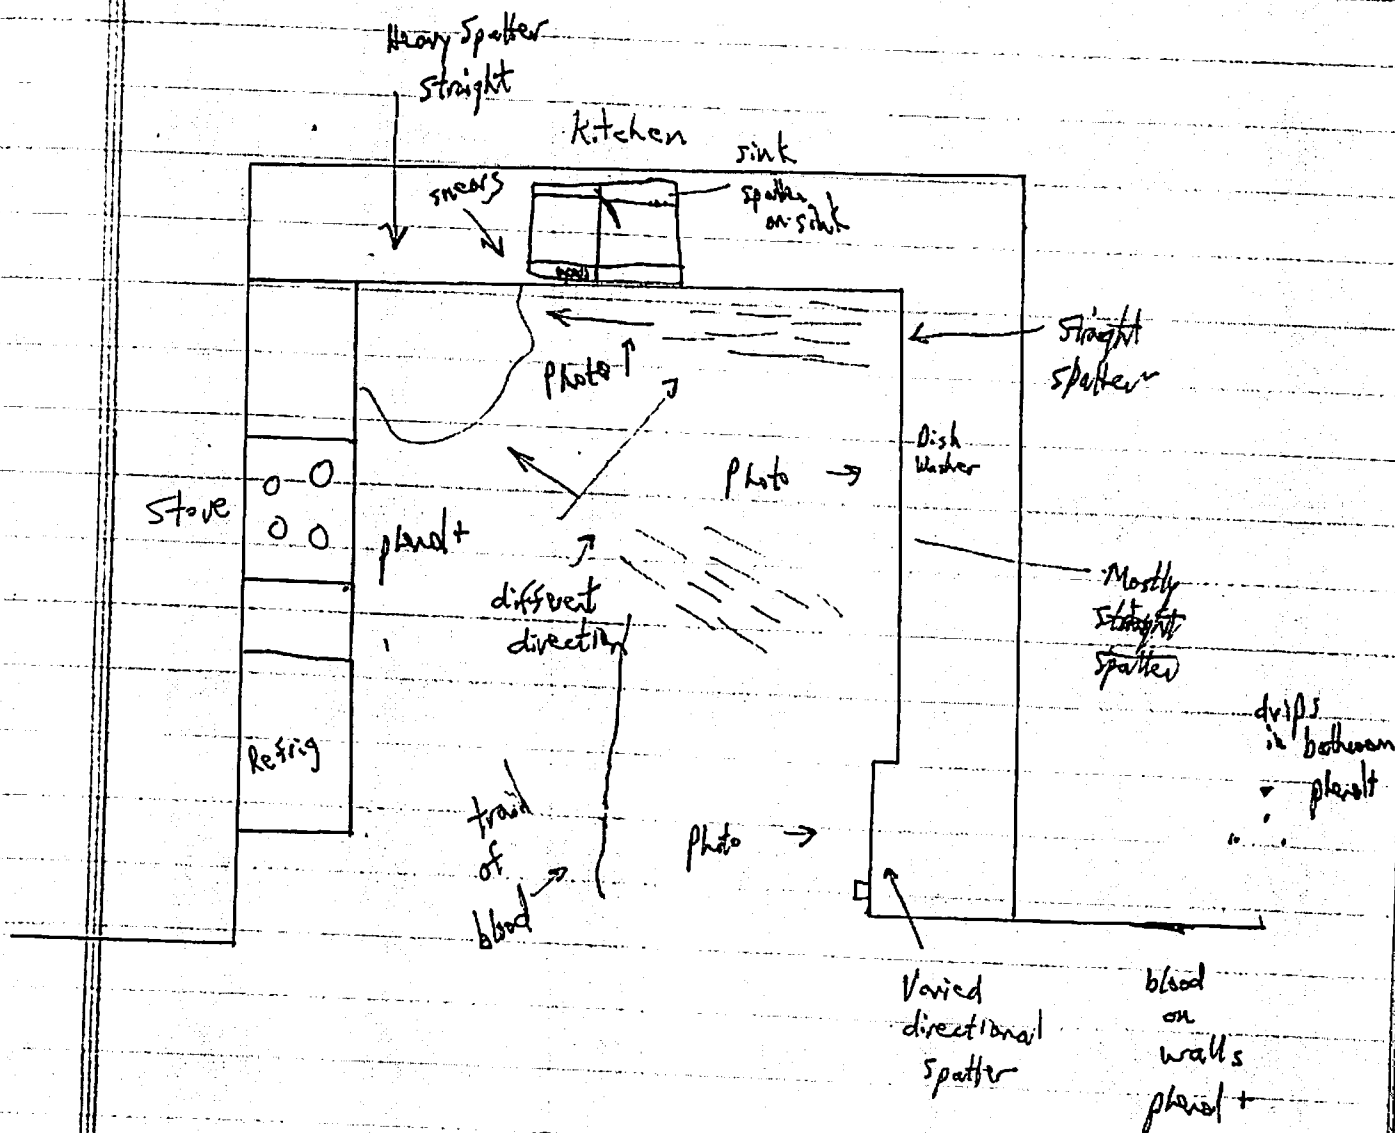 Heavy Spatter
Straight
Kitchen
sink
smears
spatter
on sink
Straight
spatter
Photo
Dish
Washer
Photo
Stove
phenol +
different
direction
Mostly
straight
spatter
drips
in bathroom
phenolt
Refrig
trail
of
blood
Photo
Varied
directional
spatter
blood
on
walls
phenol +